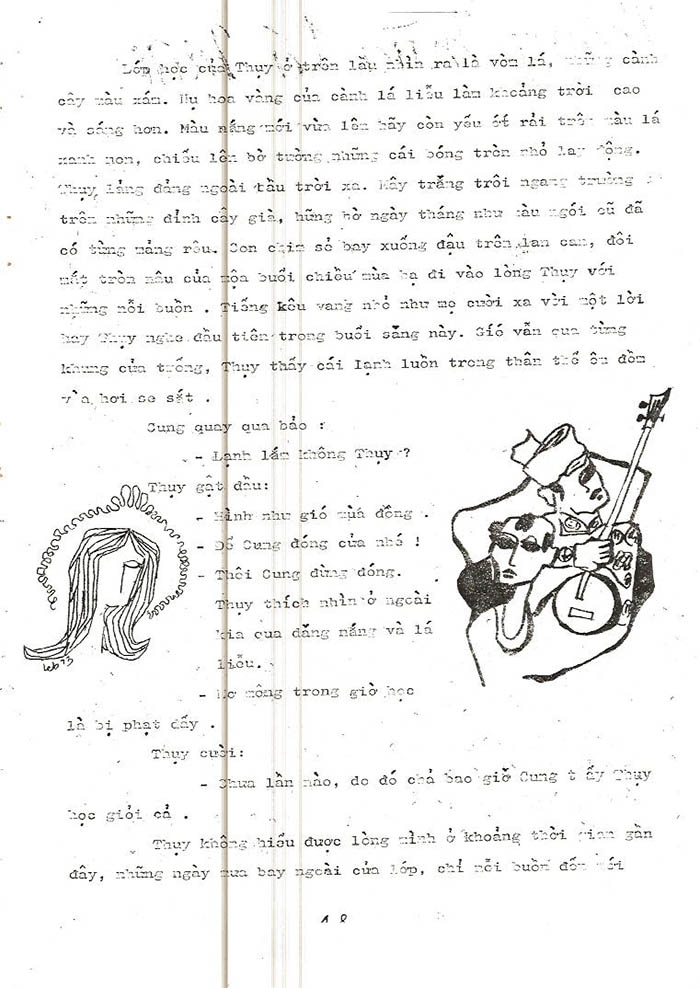 Lớp học của Thụy ở trên lầu nhìn ra là vòm lá, những cành
cây màu xám. Nụ hoa vàng của cành lá liễu làm khoảng trời cao
và sáng hơn. Màu nắng mới vừa lên hãy còn yếu ớt rải trên màu lá
xanh non, chiếu lên bờ tường những cái bóng tròn nhỏ lay động.
Thụy lảng đảng ngoài bầu trời xa. Mây trắng trôi ngang trường
trên những đỉnh cây già, hững hờ ngày tháng như màu ngói cũ đã
có từng mảng rêu. Con chim sẻ bay xuống đậu trên lan can, đôi
mắt tròn nâu của một buổi chiều mùa hạ đi vào lòng Thụy với
những nỗi buồn . Tiếng kêu vang nhỏ như mẹ cười xa vời một lời
hay Thụy nghe đầu tiên trong buổi sáng này. Gió vẫn qua từng
khung cửa trống, Thụy thấy cái lạnh luồn trong thân thể êm đềm
và hơi se sắt .
Cung quay qua bảo :
- Lạnh lắm không Thụy ?
Thụy gật đầu:
- Hình như gió mùa đông .
- Để Cung đóng cửa nhé !
- Thôi Cung đừng đóng.
Thụy thích nhìn ở ngoài
kia qua đăng nắng và lá
liễu.
- Mơ mộng trong giờ học
là bị phạt đấy .
Thụy cười:
- Chưa lần nào, do đó chả bao giờ Cung thấy Thụy
học giỏi cả .
Thụy không hiểu được lòng mình ở khoảng thời gian gần
đây, những ngày mưa bay ngoài cửa lớp, chỉ nỗi buồn đến với